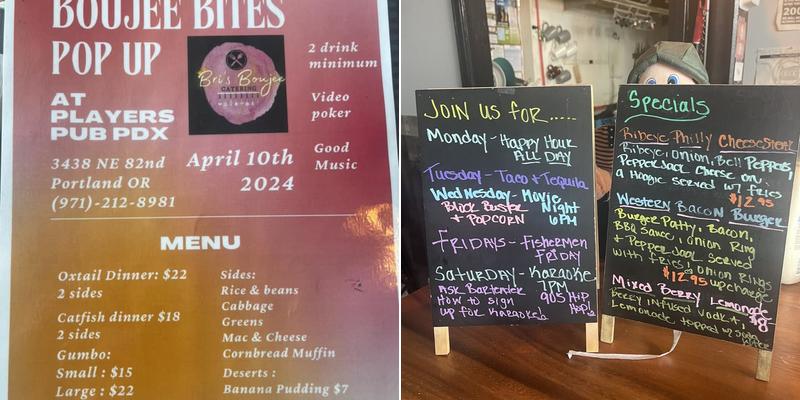 BOUJEE BITES
POP UP
AT
PLAYERS
PUB PDX
3438 NE 82nd
Portland OR
(971)-212-8981
Bri's Boujee
CATERING
April 10th
2024
2 drink
minimum
Video
poker
Good
Music
MENU
Oxtail Dinner: $22
2 sides
Catfish dinner $18
2 sides
Gumbo:
Small : $15
Large : $22
Sides:
Rice & beans
Cabbage
Greens
Mac & Cheese
Cornbread Muffin
Deserts :
Banana Pudding $7
JOIN US FOR.....
Monday - Happy Hour
ALL DAY
Tuesday - Taco + Tequila
Wednesday - Movie
Night
Block Buster
+ POPCORN
6PM
FRIDAYS - Fishermen
FRIDAY
Saturday - Karaoke
7PM
Ask Bartender
How to sign
up for Karaoke
90s Hip
Hop
Specials
Ribeye Philly CheeseSteak
Ribeye, onion, Bell Peppers,
PepperJack Cheese on
a Hoagie served w/ fries
$12.95
Western Bacon Burger
Burger Patty, Bacon,
BBQ Sauce, onion Ring
+ PepperJack served
with fries
onion Rings
upcharge
$12.95
Mixed Berry Lemonade
$8
Berry infused Vodka,
Lemonade topped w/ soda